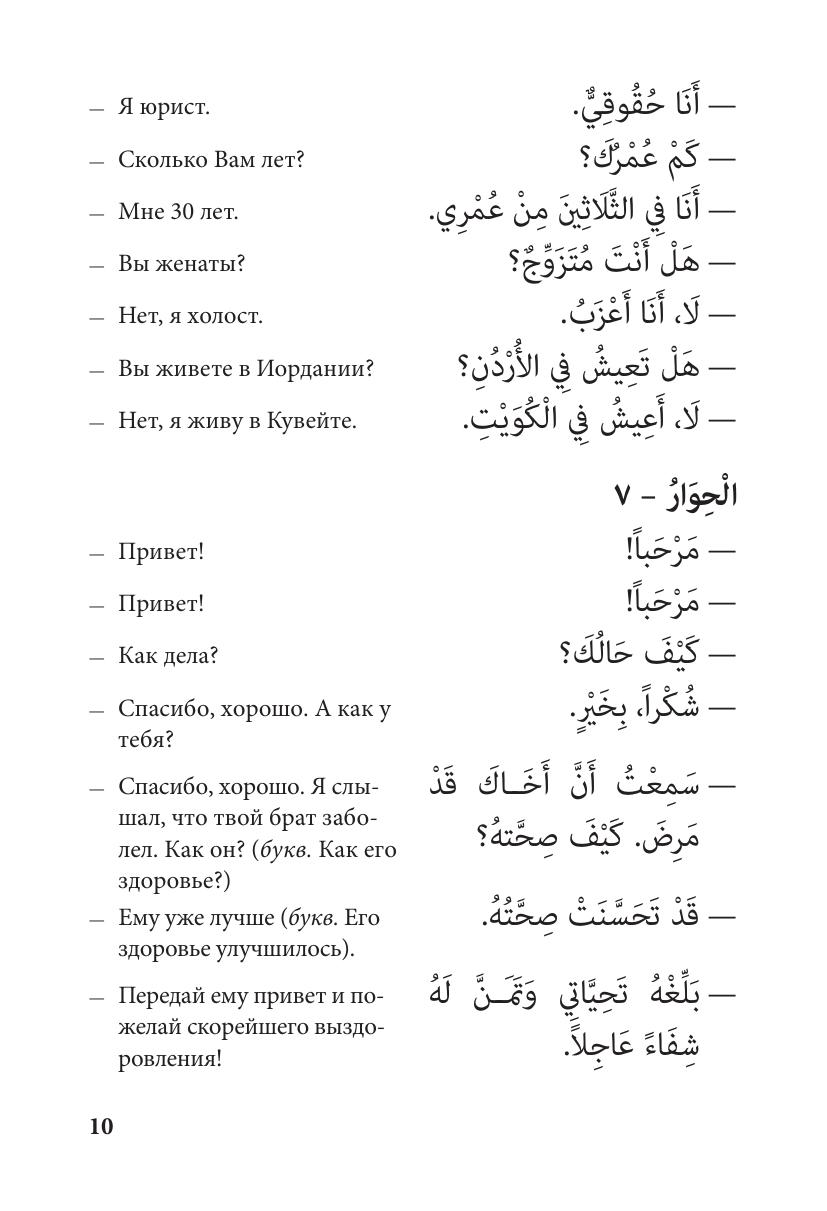 — Я юрист.
— أَنَا حُقُوقِيٌّ.
— Сколько Вам лет?
— كَمْ عُمْرُكَ؟
— Мне 30 лет.
— أَنَا فِي الثَّلَاثِينَ مِنْ عُمْرِي.
— Вы женаты?
— هَلْ أَنْتَ مُتَزَوِّجٌ؟
— Нет, я холост.
— لَا، أَنَا أَعْزَبُ.
— Вы живете в Иордании?
— هَلْ تَعِيشُ فِي الأُرْدُنِ؟
— Нет, я живу в Кувейте.
— لَا، أَعِيشُ فِي الْكُوَيْتِ.
الْحِوَارُ – ٧
— Привет!
— مَرْحَباً!
— Привет!
— مَرْحَباً!
— Как дела?
— كَيْفَ حَالُكَ؟
— Спасибо, хорошо. А как у
тебя?
— شُكْراً، بِخَيْرٍ.
— Спасибо, хорошо. Я слы-
шал, что твой брат забо-
лел. Как он? (букв. Как его
здоровье?)
— سَمِعْتُ أَنَّ أَخَـاكَ قَدْ
مَرِضَ. كَيْفَ صِحَّتهُ؟
— Ему уже лучше (букв. Его
здоровье улучшилось).
— قَدْ تَحَسَّنَتْ صِحَّتُهُ.
— Передай ему привет и по-
желай скорейшего выздо-
ровления!
— بَلِّغْهُ تَحِيَّاتِي وَتَمَـنَّ لَهُ
شِفَاءً عَاجِلاً.
10